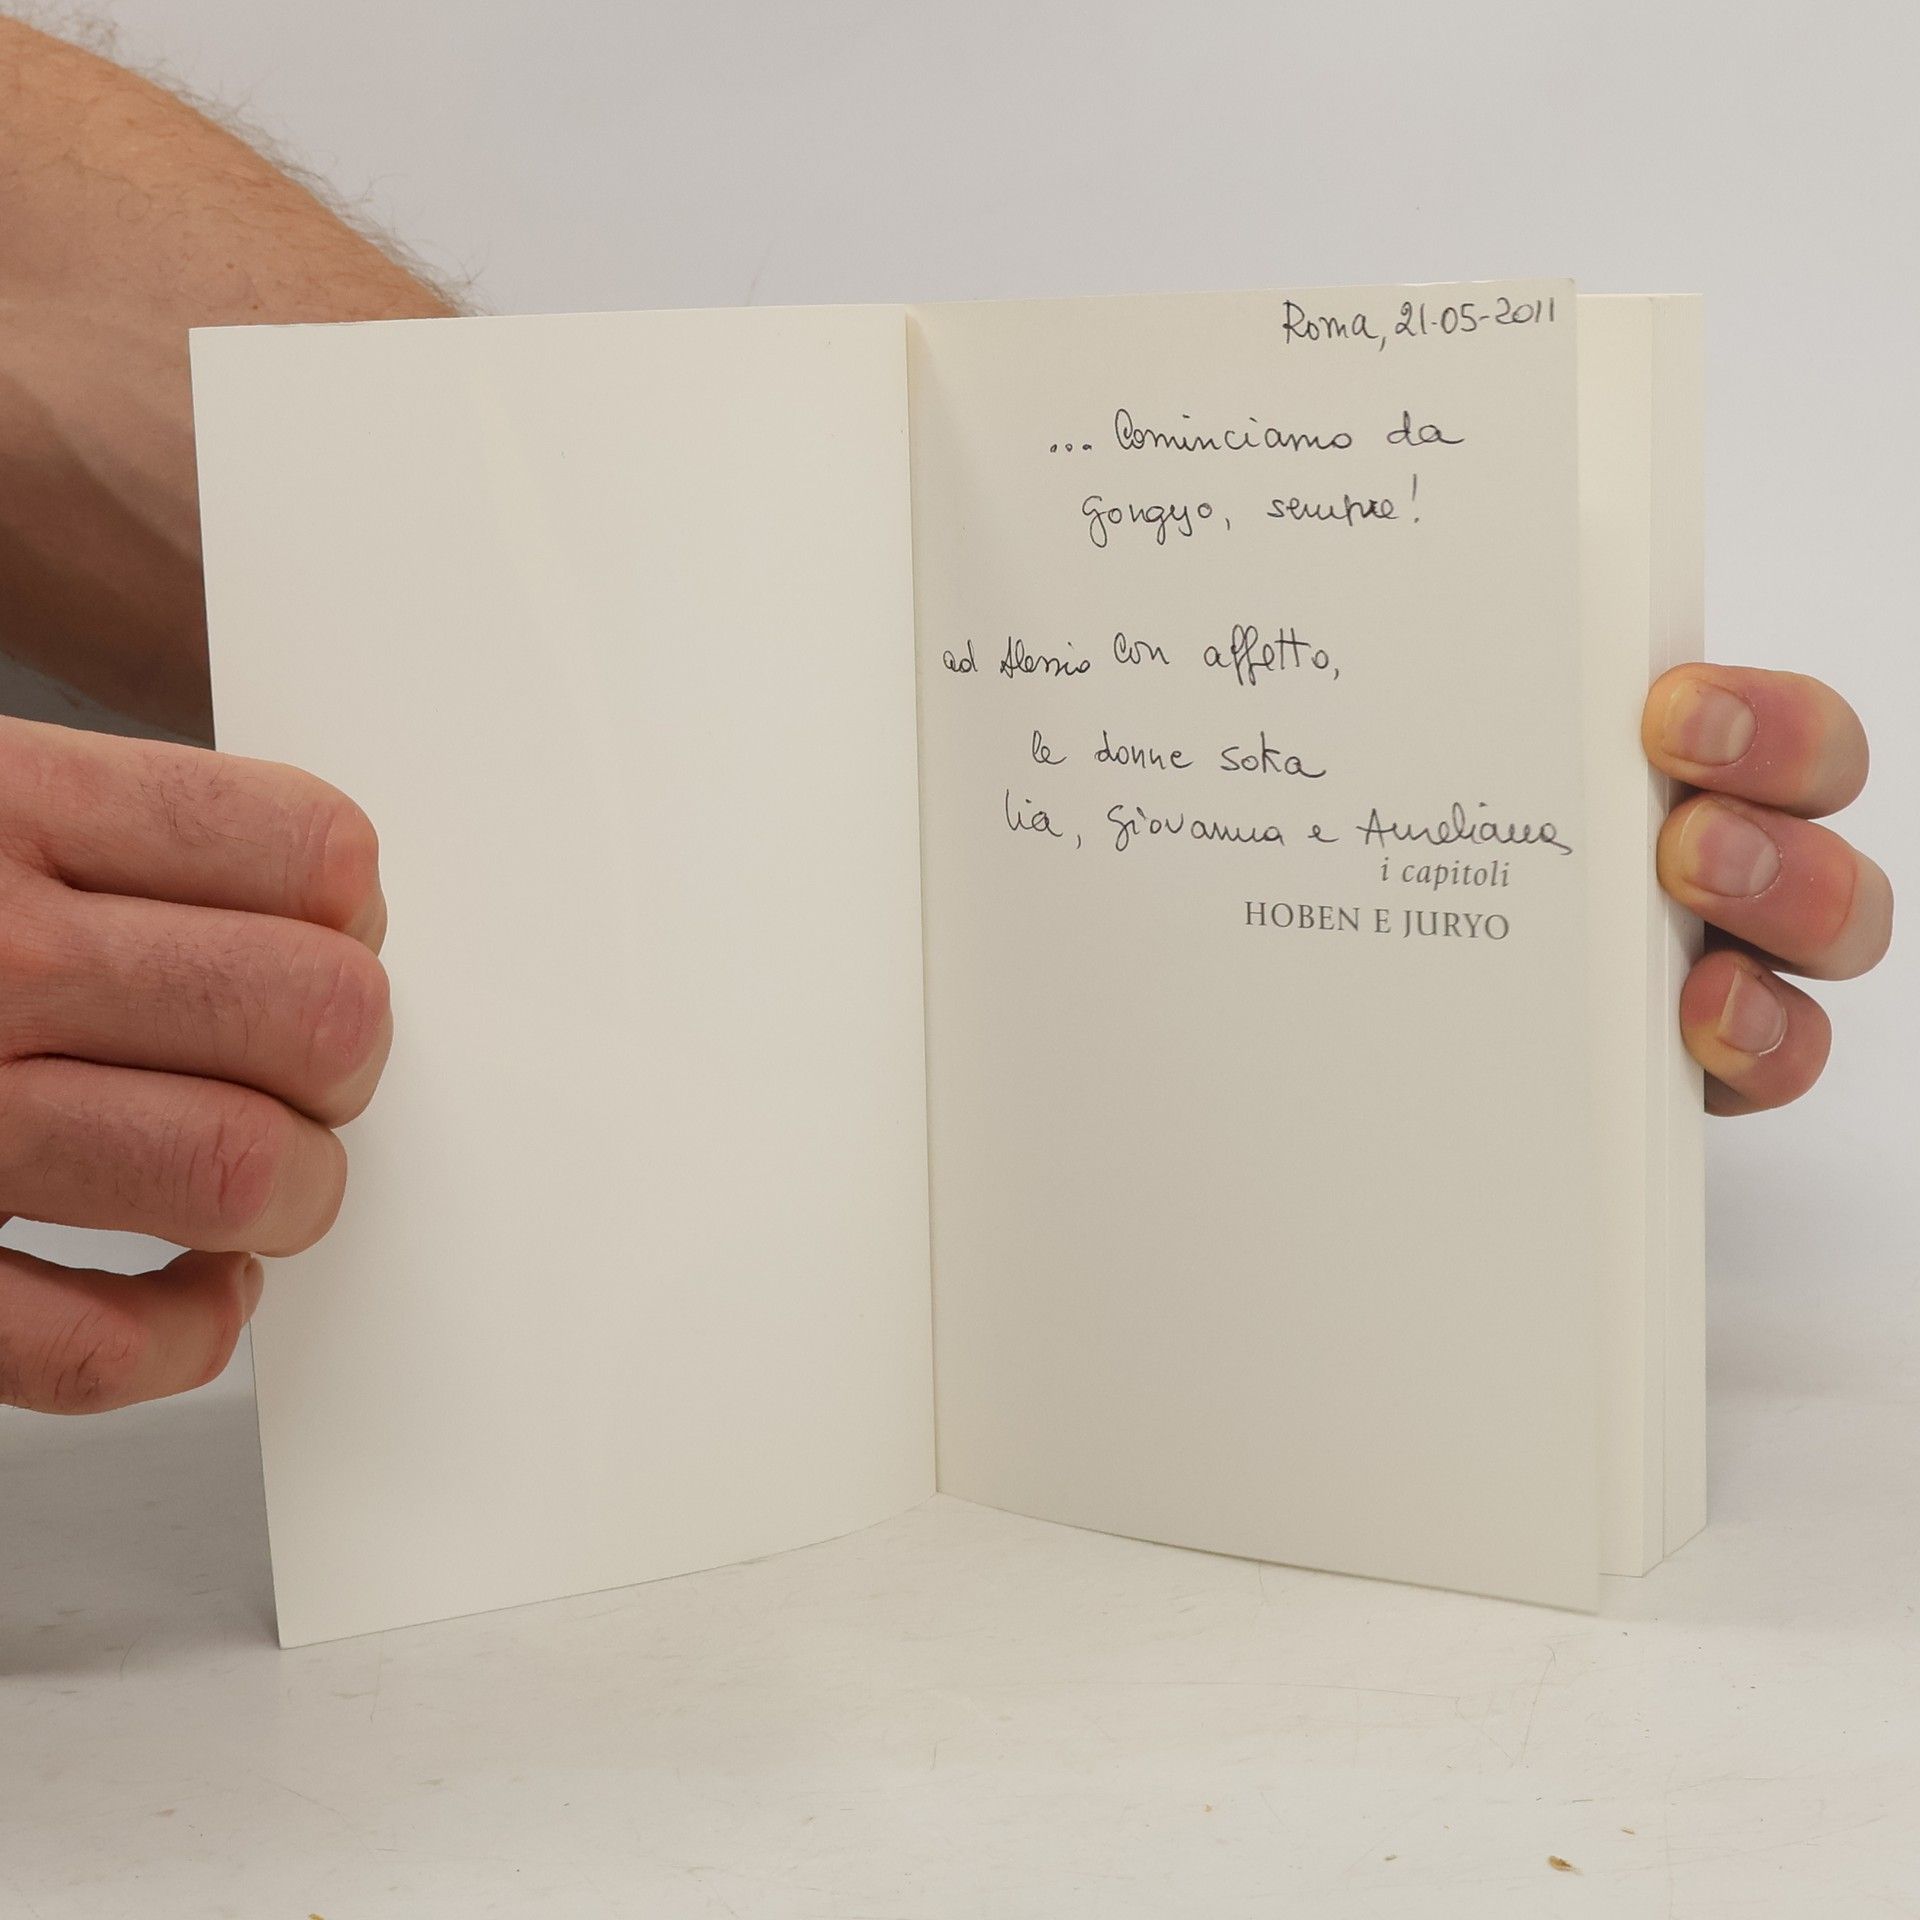 Roma, 21-05-2011
... Cominciamo da
Gongyo, sempre!
ad Alessio con affetto,
le donne soka
Lia, Giovanna e Aureliana
i capitoli
HOBEN E JURYO